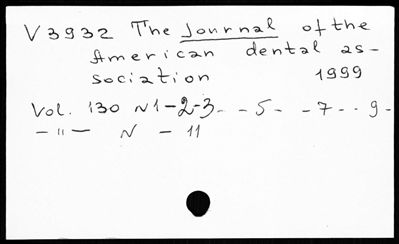 V3932 The Journal of the
American dental as-
sociation 1999
Vol. 130 N1-2-3- -5- -7- - 9-
-"- N - 11